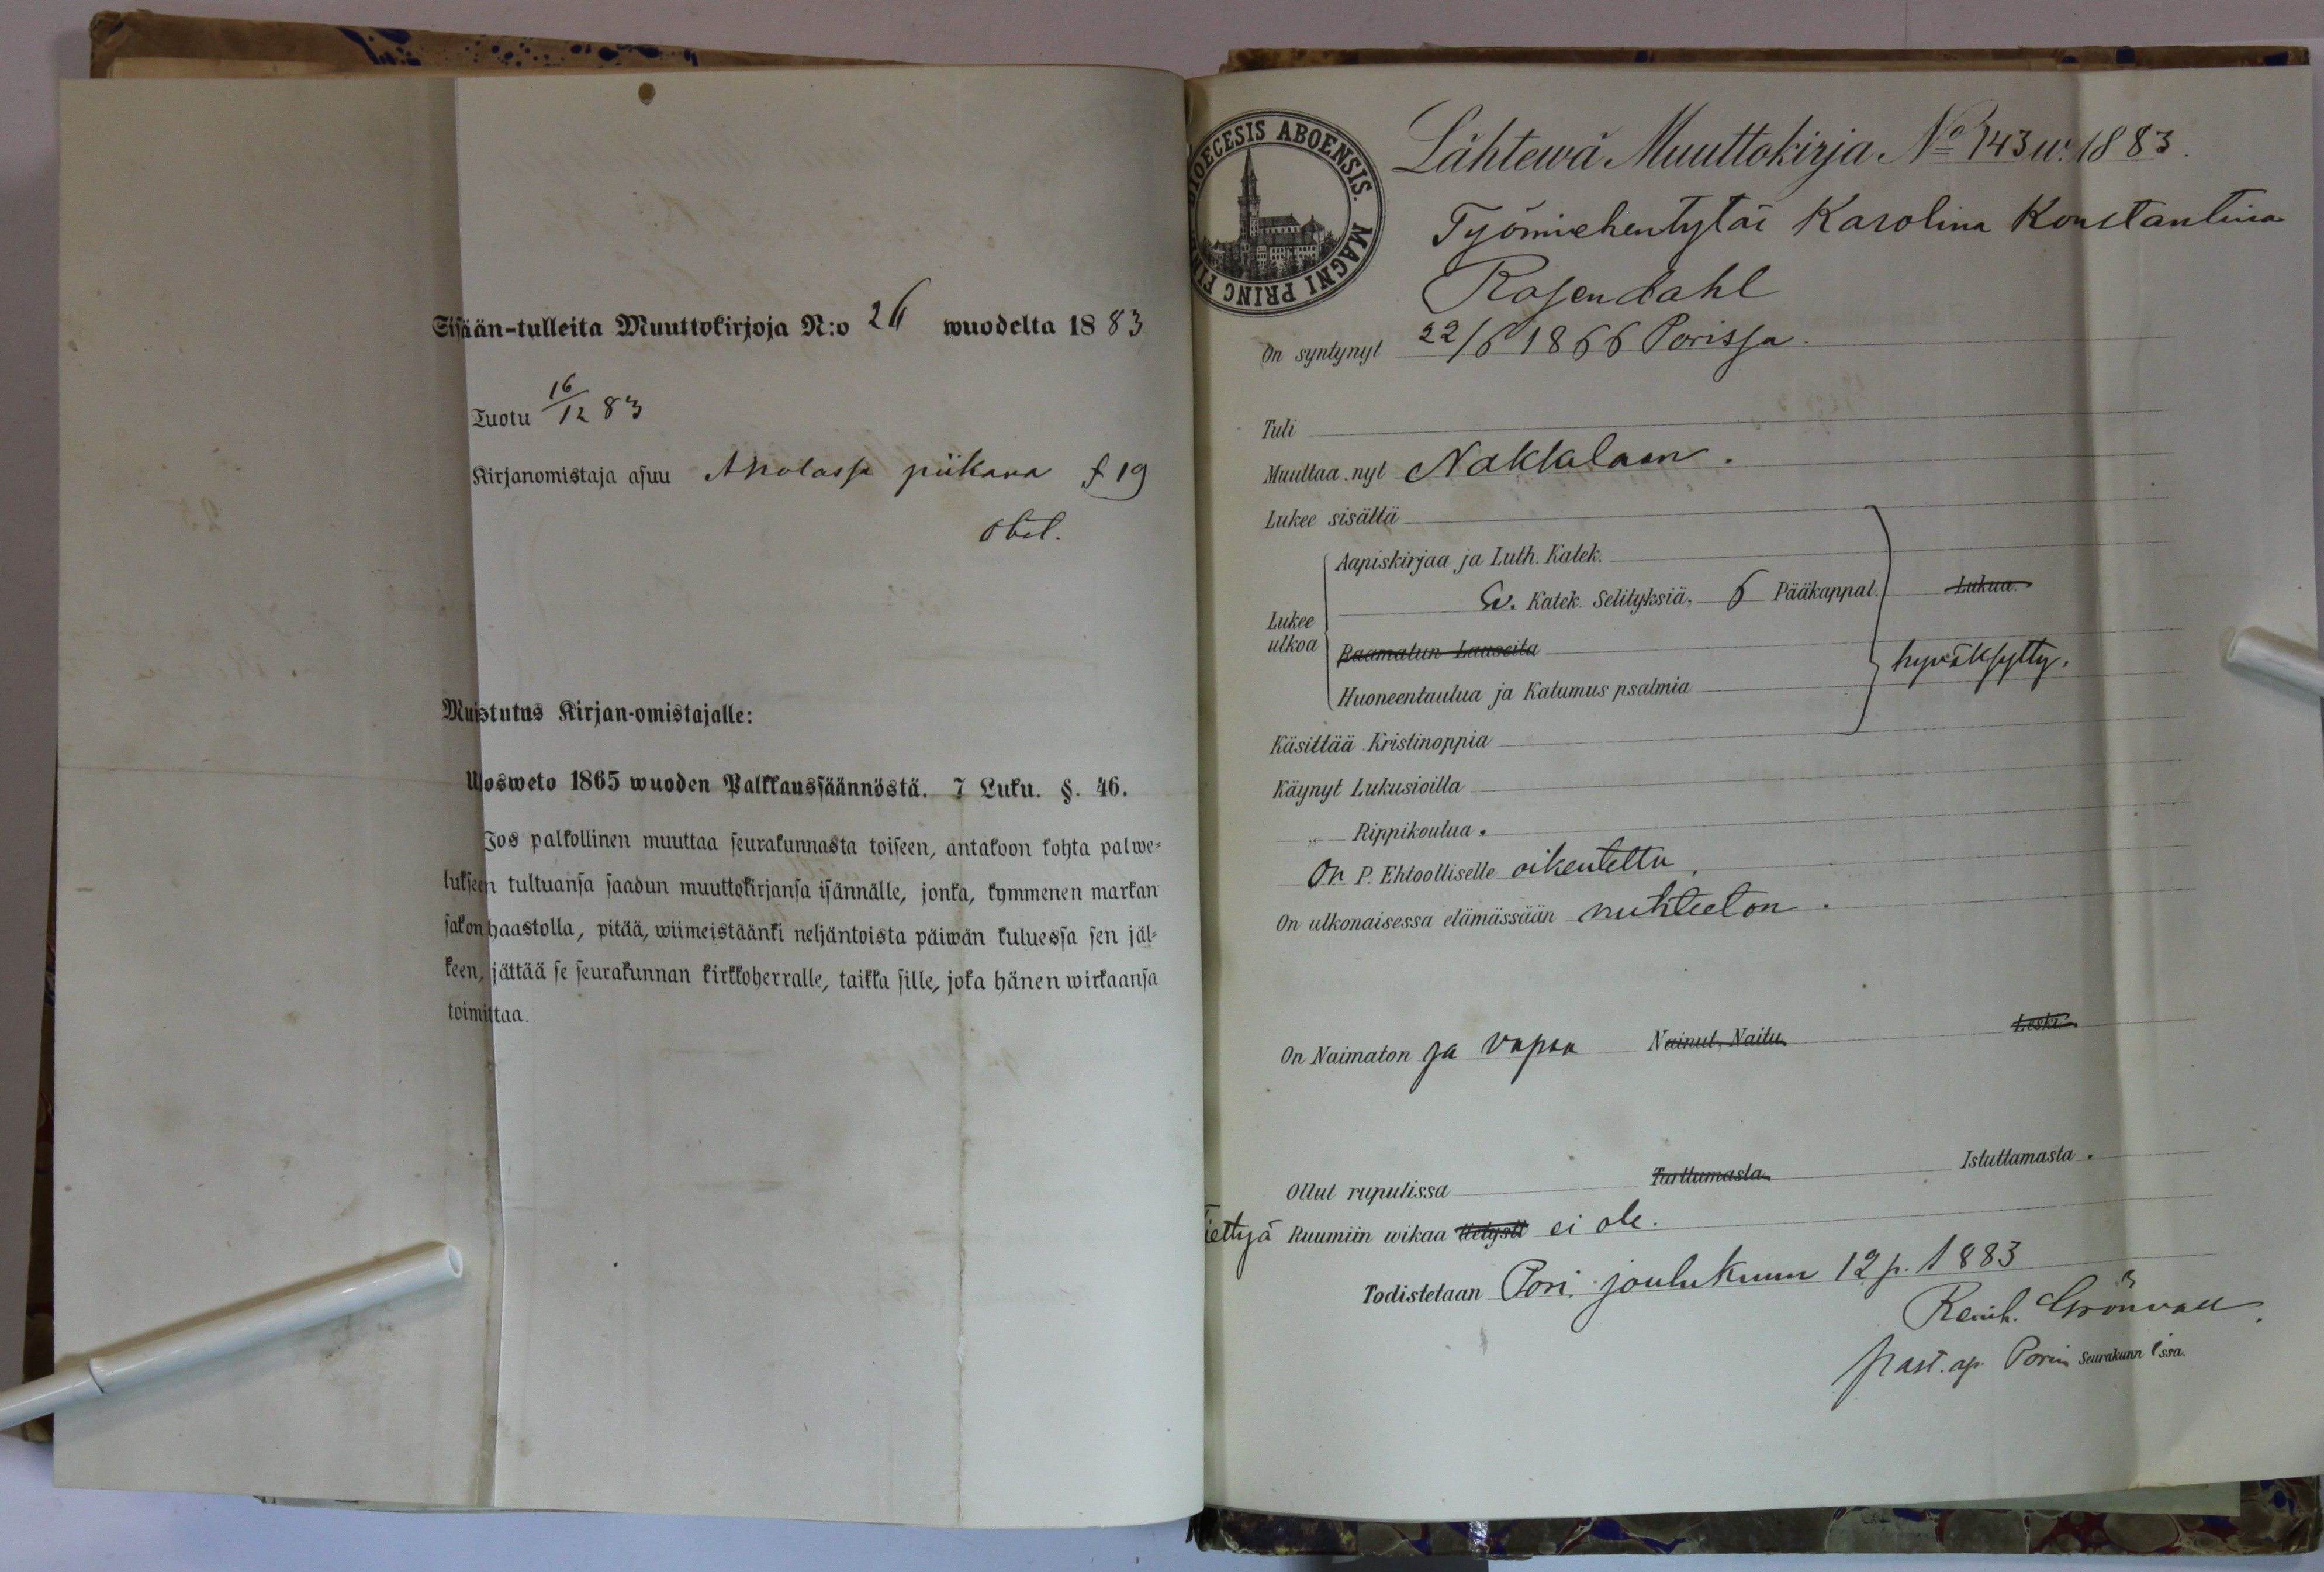 Sisään-tulleita Muuttokirjoja N:o 26 wuodelta 1883
Tuotu 16/12 83
Kirjanomistaja asuu Aholassa piikana f 19
Obol.
Muistutus Kirjan-omistajalle:
Uosweto 1865 wuoden Palkkaussäännöstä. 7 Luku. §. 46.
Jos palkollinen muuttaa seurakunnasta toiseen, antakoon kohta palwe-
lukseen tultuansa saadun muuttokirjansa isännälle, jonka, kymmenen markan
sakon haastolla, pitää, wiimeistäänki neljäntoista päiwän kuluessa sen jäl-
keen, jättää se seurakunnan kirkkoherralle, taikka sille, joka hänen wirkaansa
toimittaa.
DIOECESIS ABOENSIS. MAGNI PRINC FIN
Lähtewä Muuttokirja No 143 w. 1883.
Työmiehentytär Karolina Konstantina
Rosendahl
On syntynyt 22/6 1866 Porissa.
Tuli
Muuttaa nyt Nakkilaan.
Lukee sisältä
Aapiskirjaa ja Luth. Katek.
Sv. Katek. Selityksiä, 6 Pääkappal. Lukua.
Lukee
ulkoa
Raamatun Lauseita
hyväksytty.
Huoneentaulua ja Katumus psalmia
Käsittää Kristinoppia
Käynyt Lukusioilla
„ Rippikoulua.
On P. Ehtoolliselle oikeutettu.
On ulkonaisessa elämässään nuhteeton.
On Naimaton ja vapaa Nainut, Naitu Leski
Ollut rupulissa Tarttumasta Istuttamasta.
Tiettyä Ruumiin wikaa tietysti ei ole.
Todistetaan Pori joulukuun 12 p. 1883
Reinh. Grönvall.
past. ap. Porin Seurakunnissa.